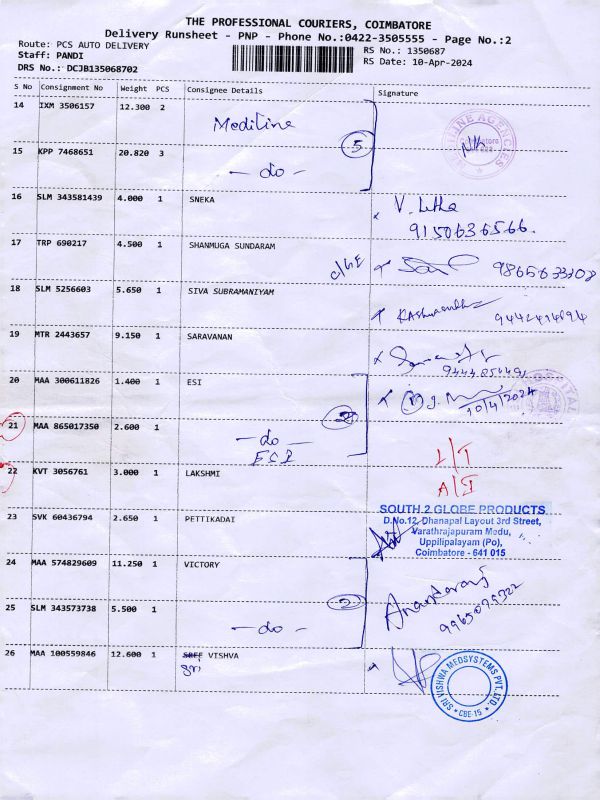 THE PROFESSIONAL COURIERS, COIMBATORE
Delivery Runsheet - PNP - Phone No.:0422-3505555 - Page No.:2
Route: PCS AUTO DELIVERY
RS No.: 1350687
Staff: PANDI
RS Date: 10-Apr-2024
DRS No.: DCJB135068702
S No Consignment No Weight PCS Consignee Details Signature
14 IXM 3506157 12.300 2
Mediline
5
15 KPP 7468651 20.820 3
- do -
16 SLM 343581439 4.000 1 SNEKA
V. Latha
9150636566.
17 TRP 690217 4.500 1 SHANMUGA SUNDARAM
18 SLM 5256603 5.650 1 SIVA SUBRAMANIYAM
19 MTR 2443657 9.150 1 SARAVANAN
20 MAA 300611826 1.400 1 ESI
10/4/2024
21 MAA 865017350 2.600 1
2
- do -
ESI
L/T
22 KVT 3056761 3.000 1 LAKSHMI
A/I
23 SVK 60436794 2.650 1 PETTIKADAI
SOUTH 2 GLOBE PRODUCTS
D.No.12, Dhanapal Layout 3rd Street,
Varathrajapuram Medu,
Uppilipalayam (Po),
Coimbatore - 641 015
24 MAA 574829609 11.250 1 VICTORY
2
9965079322
25 SLM 343573738 5.500 1
- do -
26 MAA 100559846 12.600 1 SREE VISHVA
Sri
SRI VISHWA MEDSYSTEMS PVT. LTD.
CBE-15